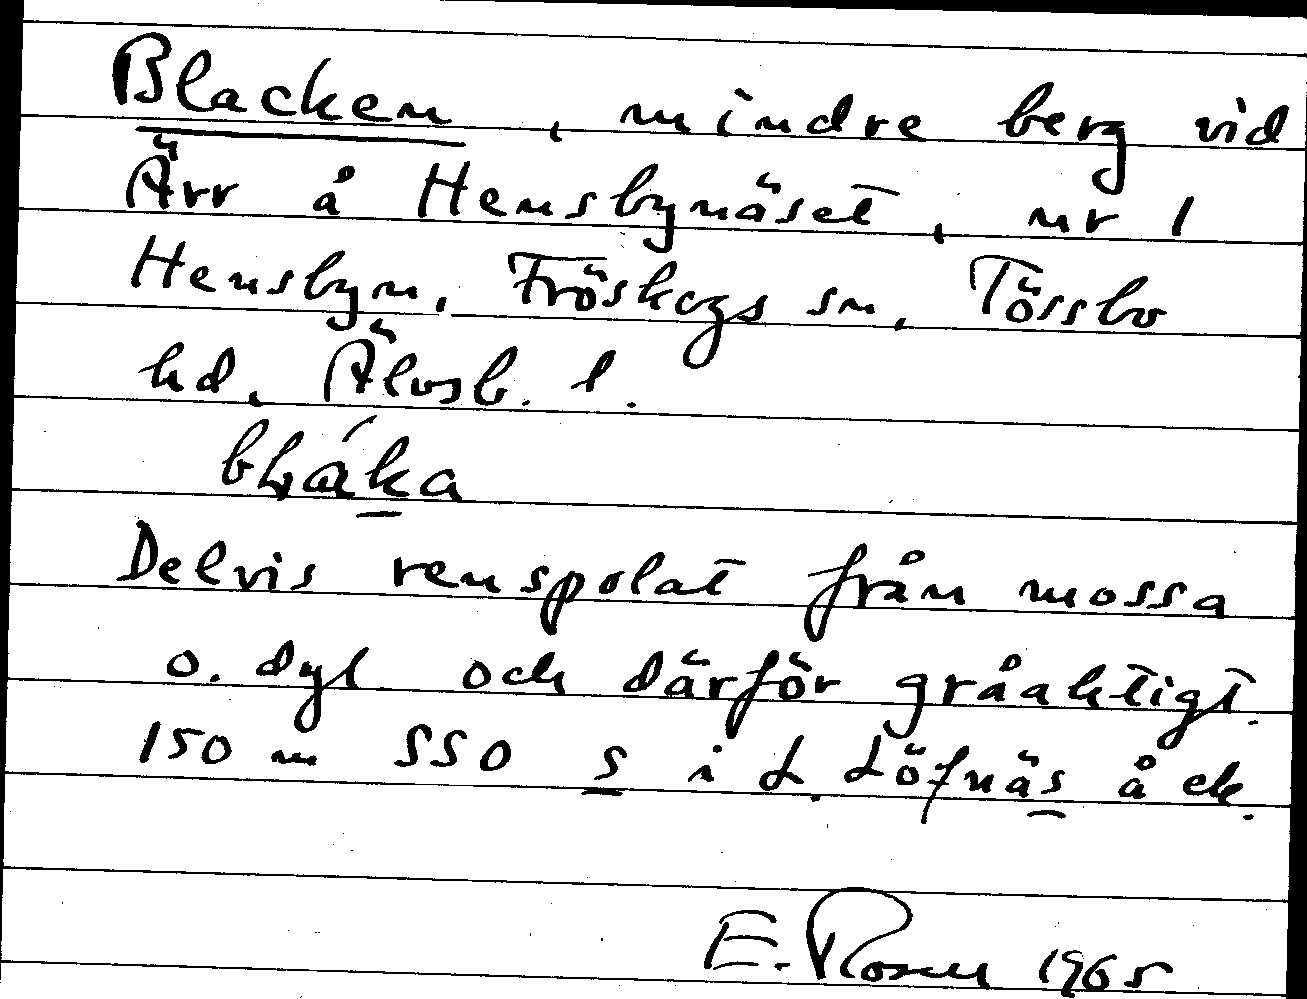 Blacken, mindre berg vid
Ärr å Hensbynäset, nr 1
Hensbyn, Fröskogs sn, Tössbo
hd, Älvsb. l.
Delvis renspolat från mossa
o. dyl och därför gråaktigt.
150 m SSO s i L. Löfnäs å ek.
E. Rosen 1965